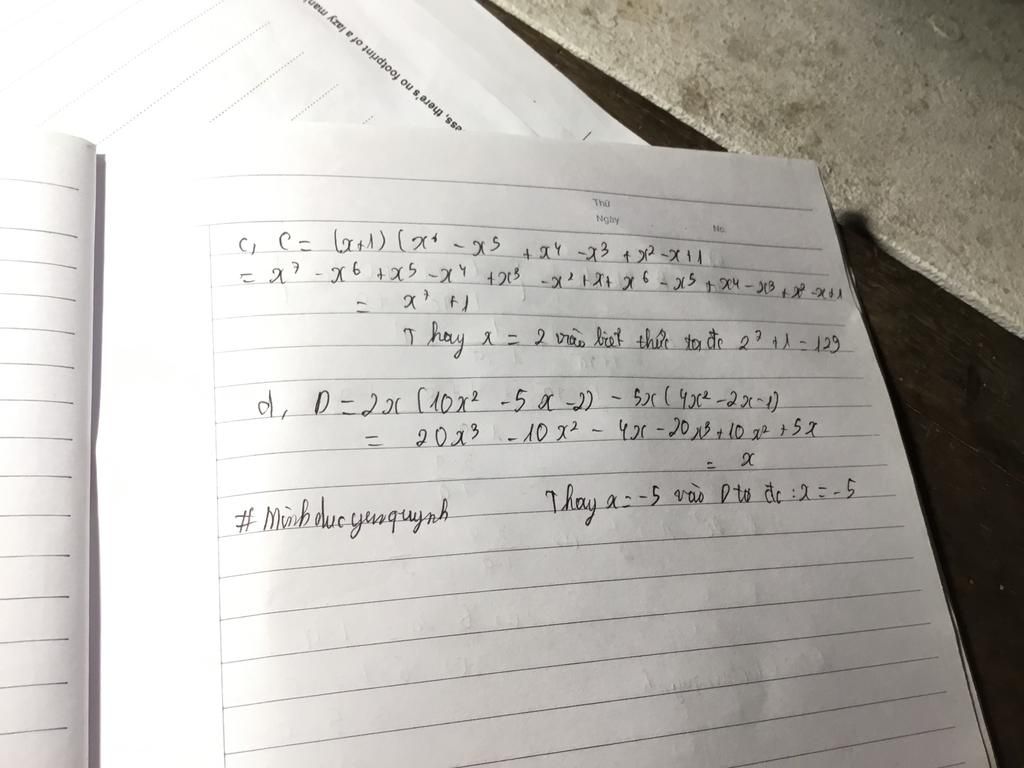 ess, there's no footprint of a lazy man
Thứ
Ngày
No.
c, C = (x+1) (x⁶ - x⁵ + x⁴ - x³ + x² - x + 1
= x⁷ - x⁶ + x⁵ - x⁴ + x³ - x² + x + x⁶ - x⁵ + x⁴ - x³ + x² - x + 1
= x⁷ + 1
Thay x = 2 vào biết thức ta đc 2⁷ + 1 = 129
d, D = 2x (10x² - 5x - 2) - 5x (4x² - 2x - 1)
= 20x³ - 10x² - 4x - 20x³ + 10x² + 5x
= x
Thay x = -5 vào D ta đc : x = -5
# Minhducyenquynh